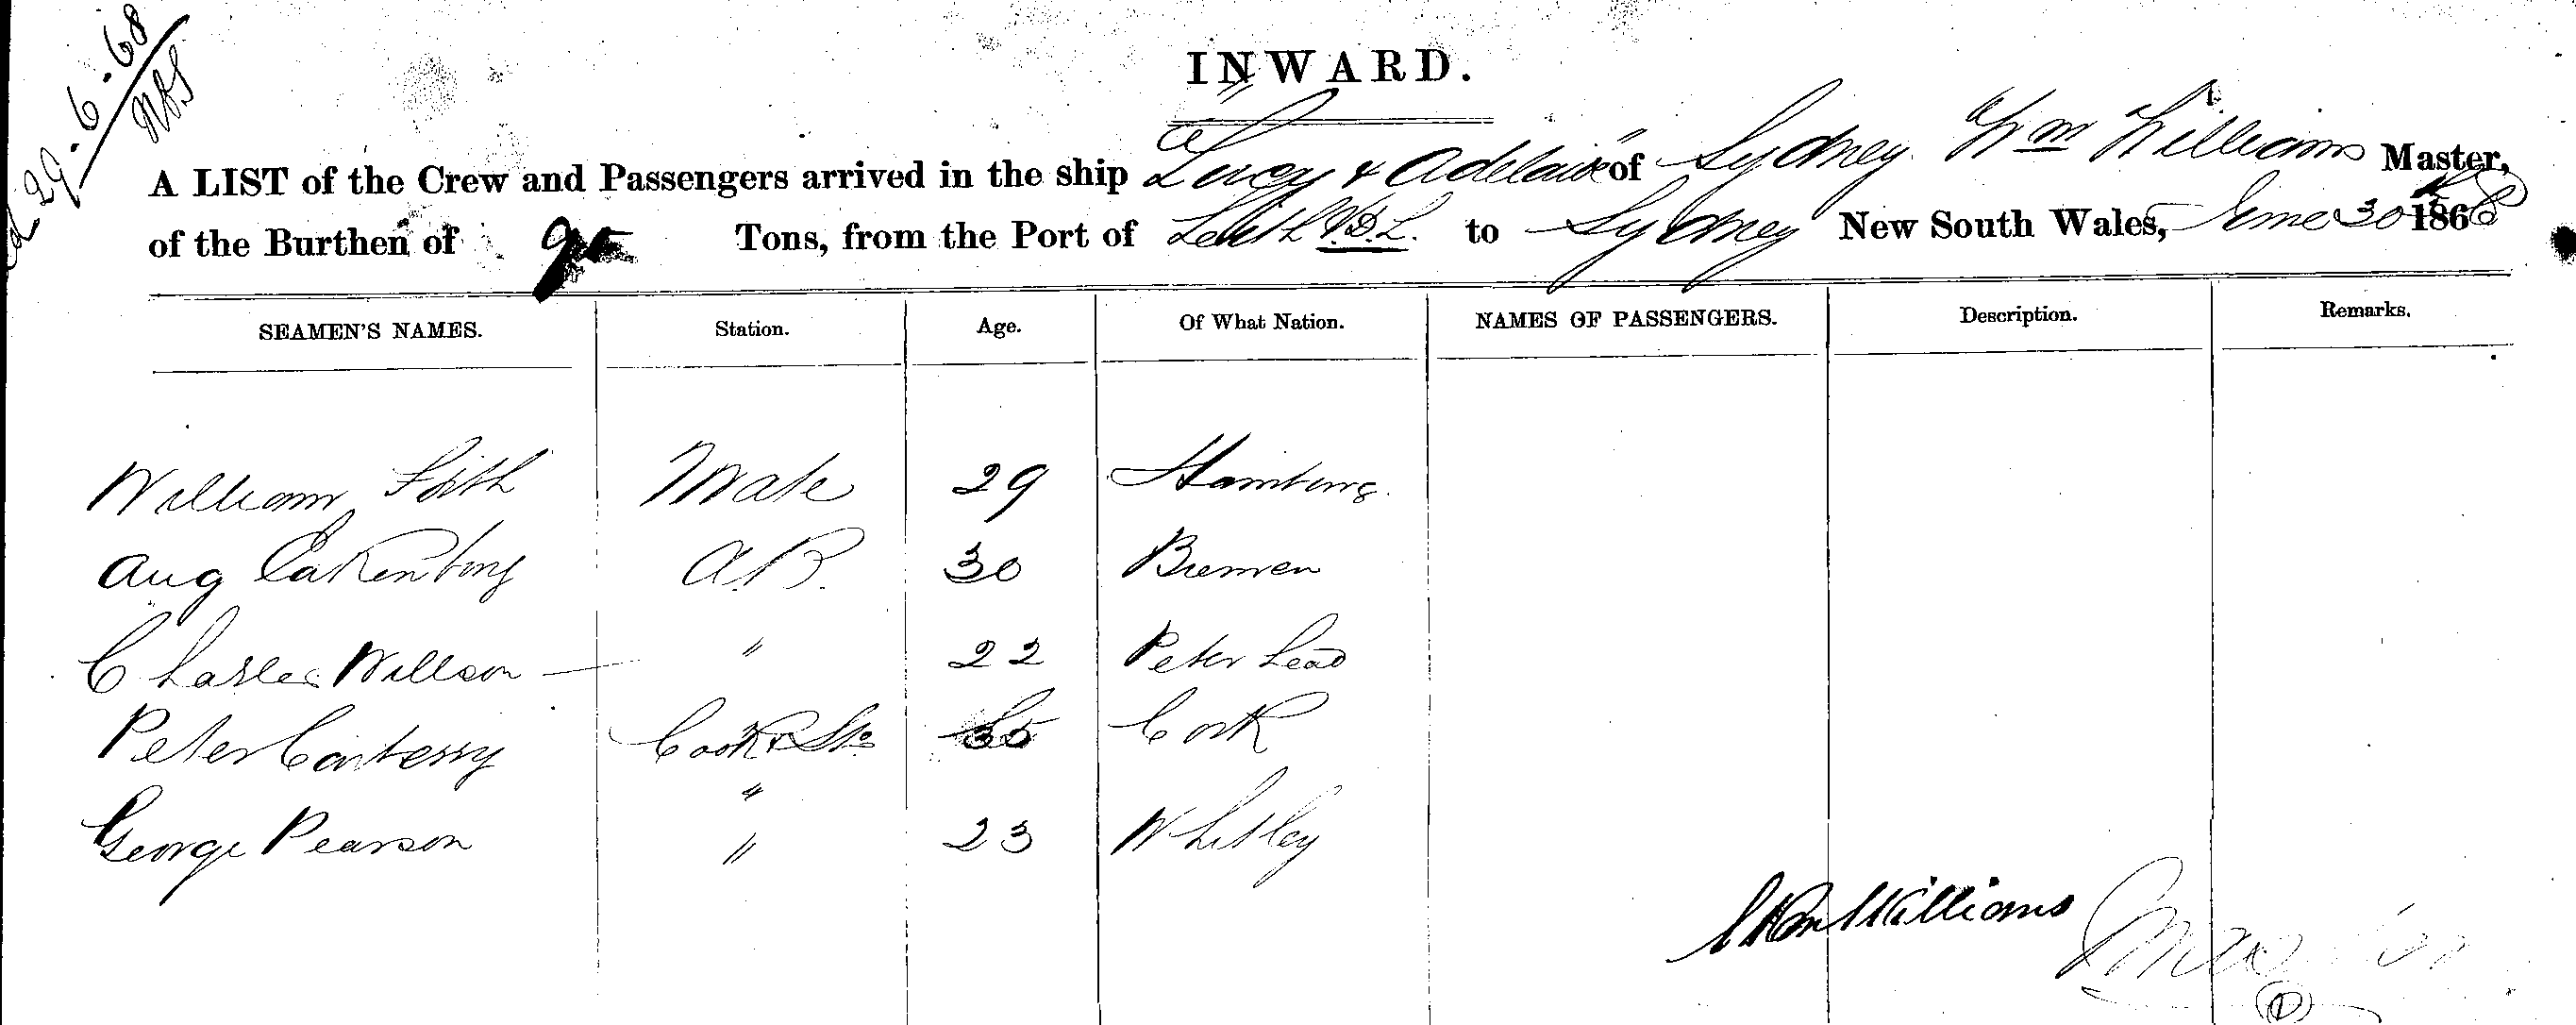 29-6-68
INWARD.
A LIST of the Crew and Passengers arrived in the ship "Lucy & Adelaide" of Sydney. Wm Williams Master,
of the Burthen of Tons, from the Port of to Sydney New South Wales, June 30th 1868
SEAMEN'S NAMES. Station. Age. Of What Nation. NAMES OF PASSENGERS. Description. Remarks.
William Mate 29 Hamburg.
Aug A.B. 30 Bremen
Charles Willson " 22 Peter head
Peter Conberry Cook & 35 Cork
"
George Pearson " 23 Whitley
Wm Williams